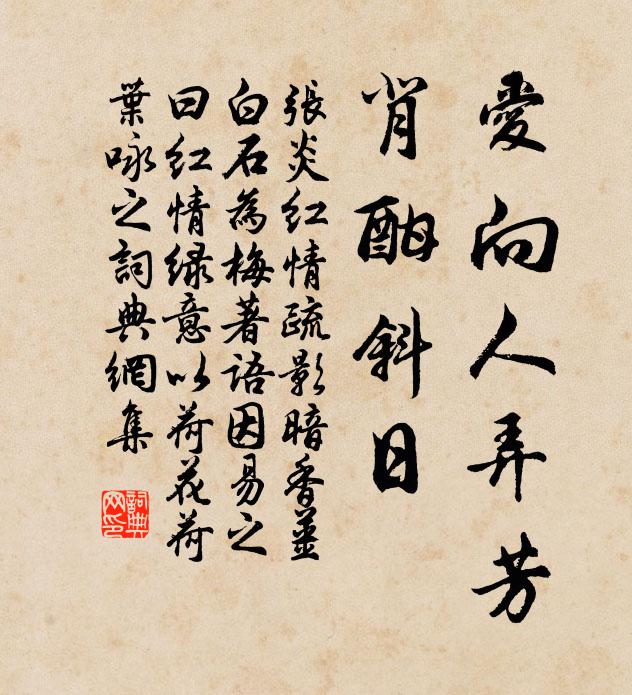 愛向人弄芳
背酣斜日
張炎紅情疏影暗香薑
白石為梅著語因易之
曰紅情緑意以荷花荷
葉咏之詞典網集
詞典网印